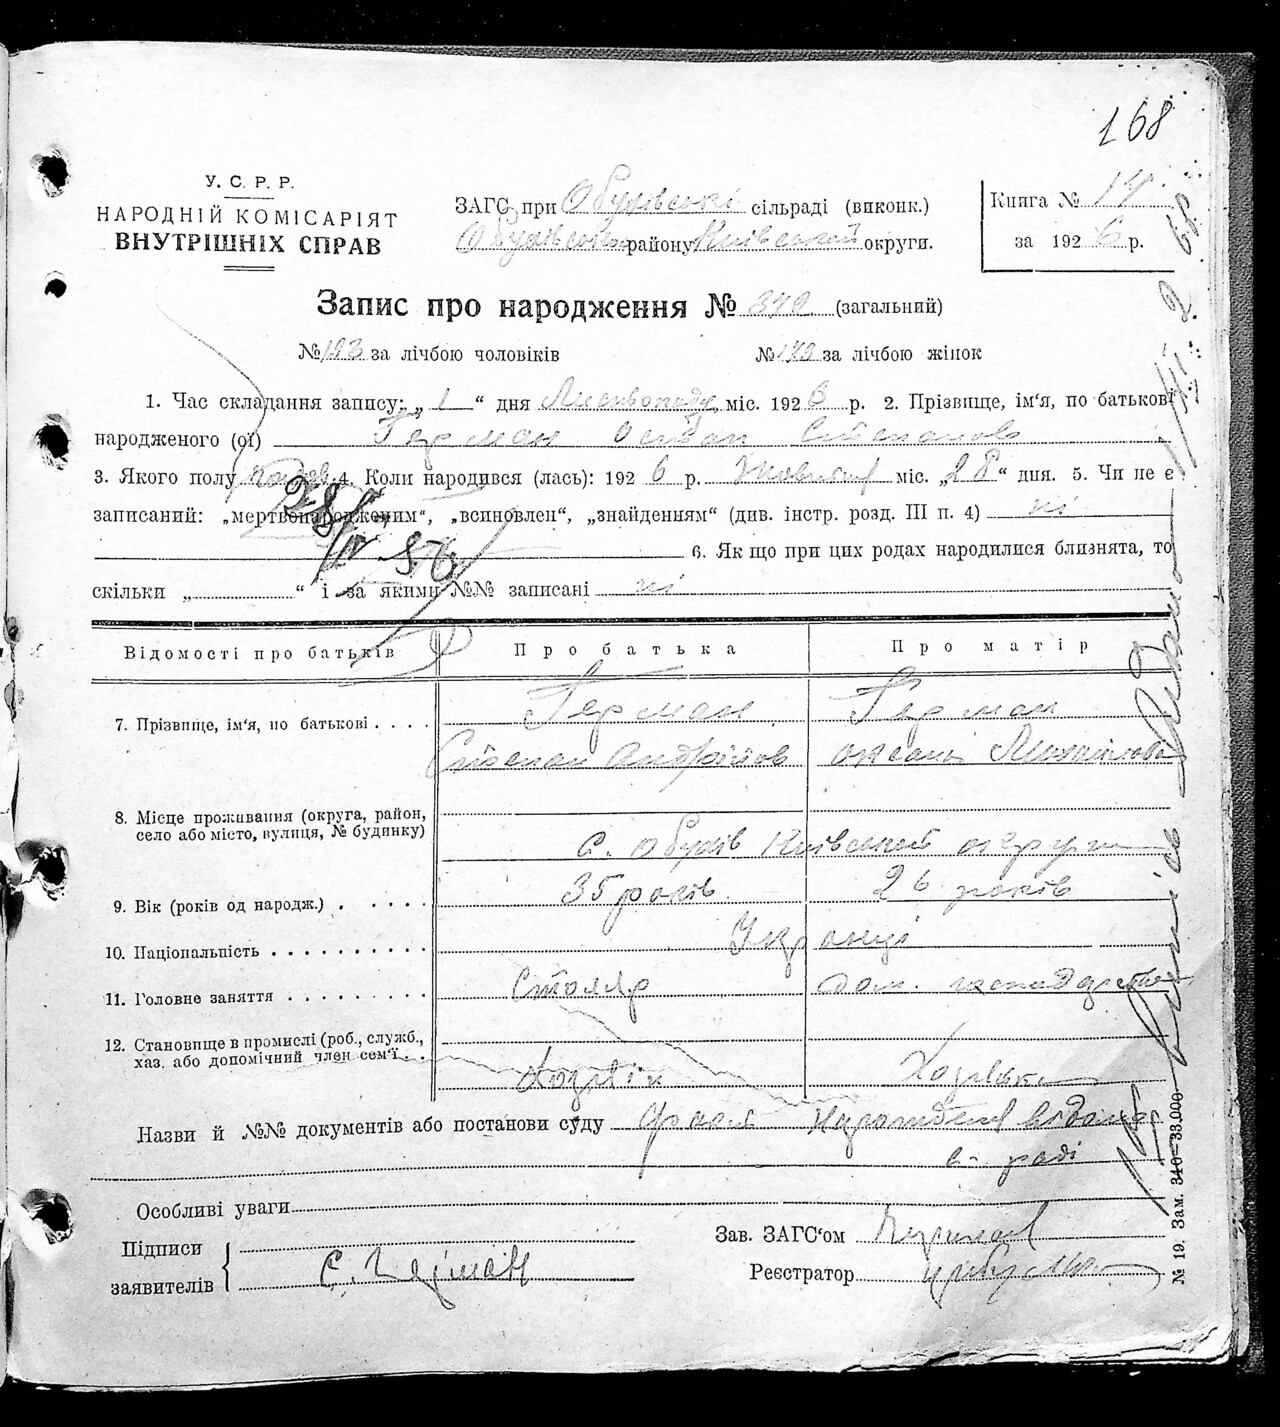 168
У. С. Р. Р.
НАРОДНІЙ КОМІСАРІЯТ
ВНУТРІШНІХ СПРАВ
ЗАГС при Обухівські сільраді (виконк.)
Обухівського району Київської округи.
Книга № 14
за 1926 р.
Запис про народження № 342 (загальний)
№ 193 за лічбою чоловіків
№ 149 за лічбою жінок
1. Час складання запису: „ 1 “ дня Листопаду міс. 1926 р. 2. Прізвище, ім'я, по батькові
народженого (ої) Герман Остап Степанов
3. Якого полу 4. Коли народився (лась): 1926 р. Жовтня міс. „28“ дня. 5. Чи не є
записаний: „мертвонародженим“, „всиновлен“, „знайденням“ (див. інстр. розд. III п. 4) ні
6. Як що при цих родах народилися близнята, то
скільки „ “ і за якими №№ записані ні
Відомості про батьків Про батька Про матір
7. Прізвище, ім'я, по батькові . . . . Герман Герман
Степан Андрійов Оксана Михайлова
8. Місце проживання (округа, район,
село або місто, вулиця, № будинку)
с. Обухів Київської округи
9. Вік (років од народж.) . . . . . 35 років 26 років
10. Національність . . . . . . . . . Українці
11. Головне заняття . . . . . . . . . Столяр Дом. господарство
12. Становище в промислі (роб., служб.,
хаз. або допомічний член сем'ї . .
Хозяїн Хозяйка
Назви й №№ документів або постанови суду
с-раді
Особливі уваги
Підписи
заявителів
С. Герман
Зав. ЗАГС'ом
Реєстратор
№ 19. Зам. 340—33.000